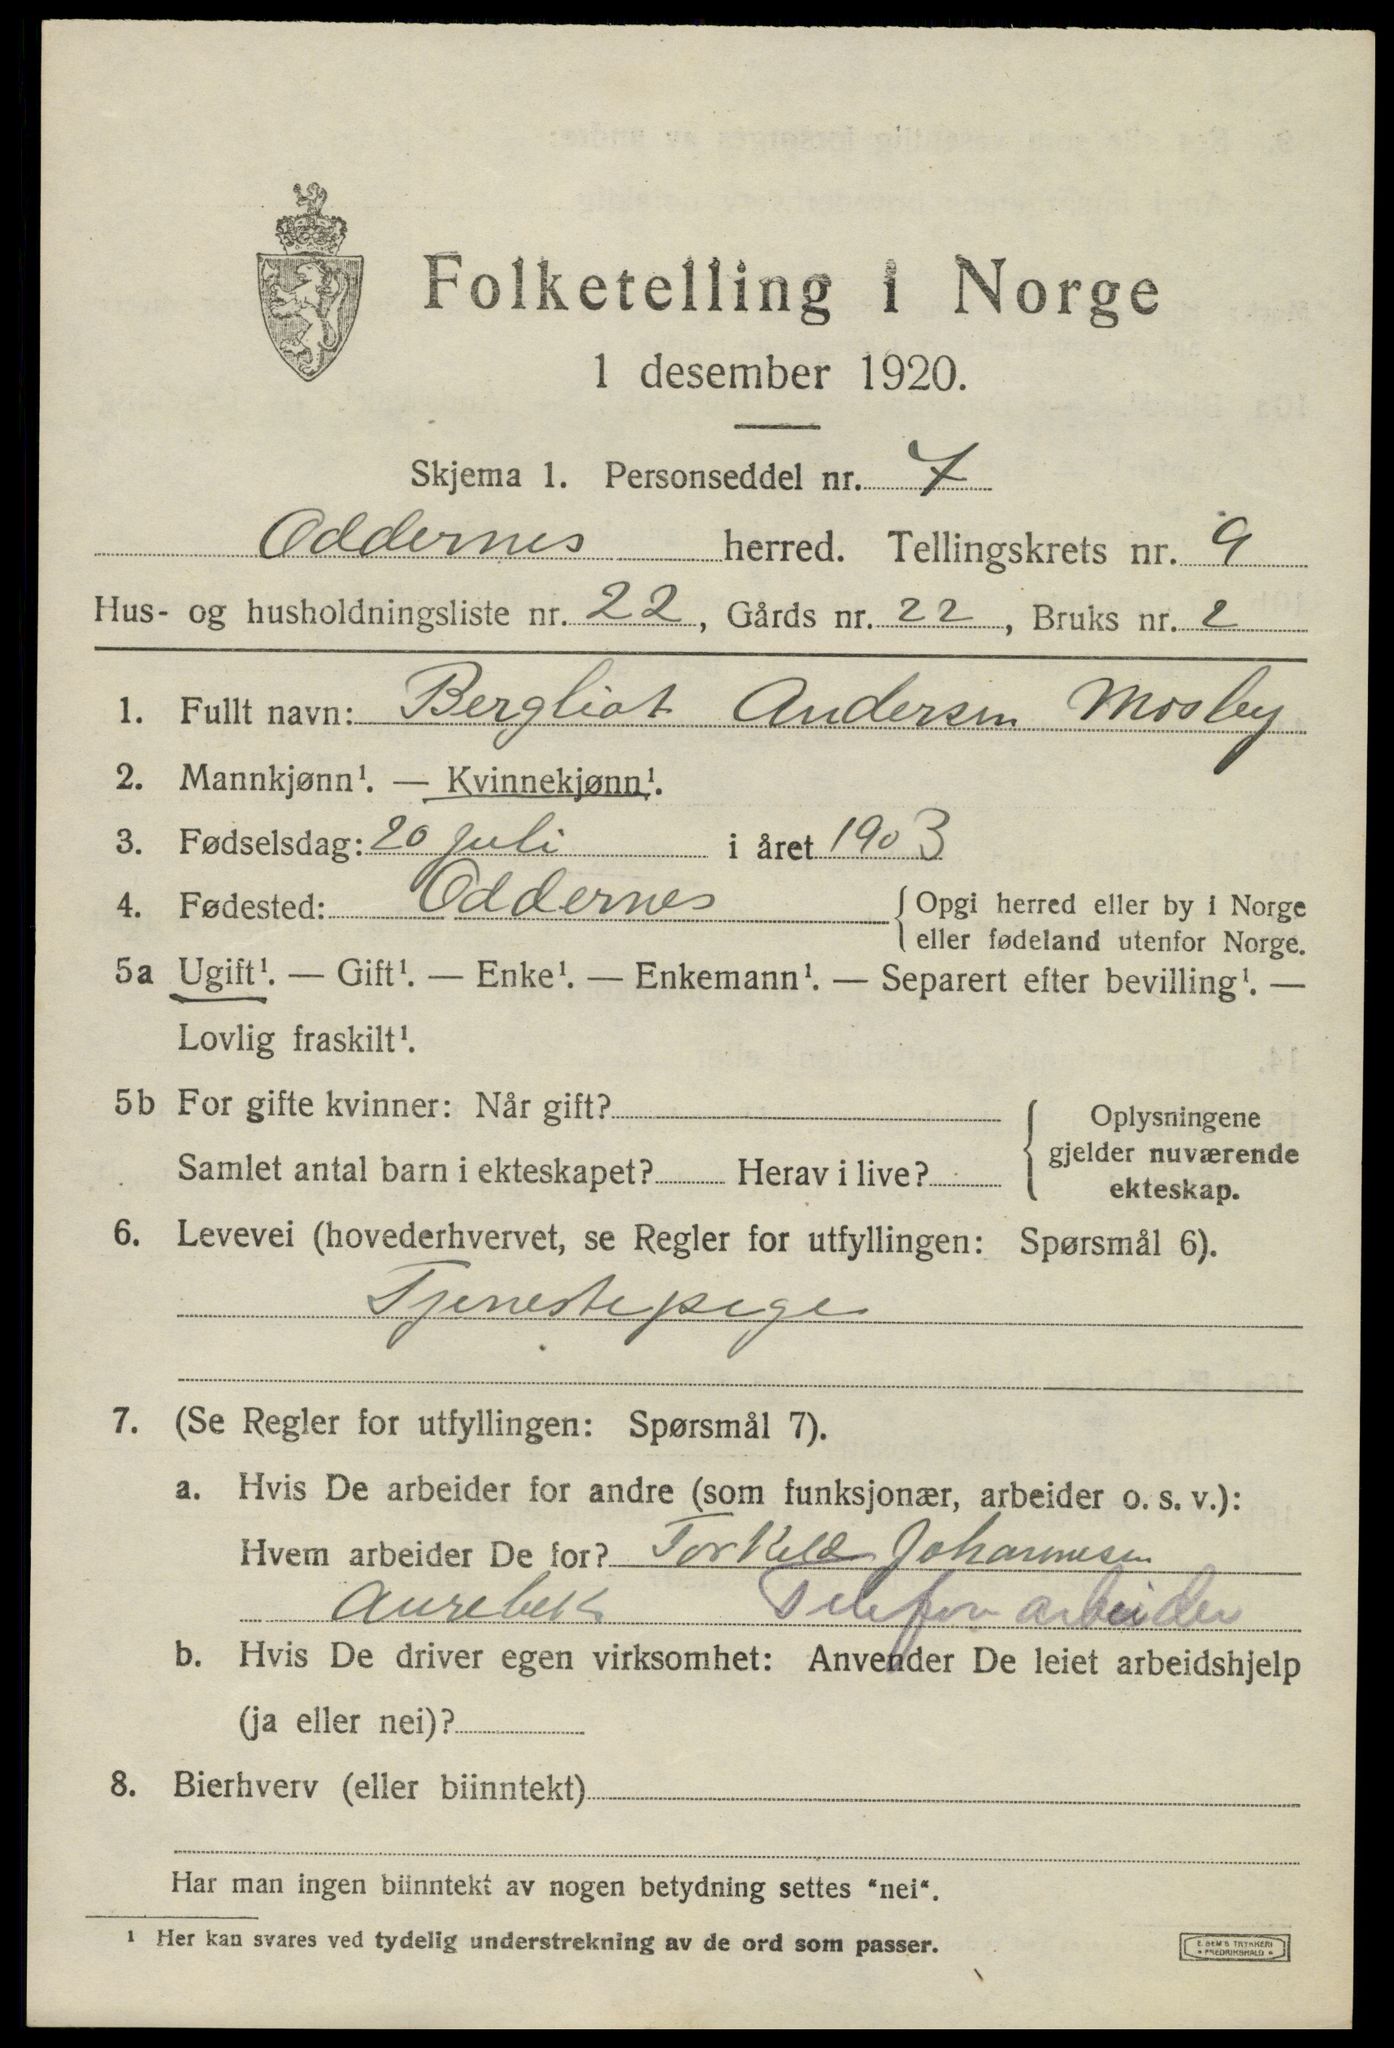 Folketelling i Norge
1 desember 1920.
Skjema 1. Personseddel nr. 7
Oddernes herred. Tellingskrets nr. 9
Hus- og husholdningsliste nr. 22, Gårds nr. 22, Bruks nr. 2
1. Fullt navn: Bergliot Andersen Mosby
2. Mannkjønn¹. — Kvinnekjønn¹.
3. Fødselsdag: 20 juli i året 1903
4. Fødested: Oddernes { Opgi herred eller by i Norge
eller fødeland utenfor Norge.
5a Ugift¹. — Gift¹. — Enke¹. — Enkemann¹. — Separert efter bevilling¹. —
Lovlig fraskilt¹.
5b For gifte kvinner: Når gift? { Oplysningene
gjelder nuværende
ekteskap.
Samlet antal barn i ekteskapet? Herav i live?
6. Levevei (hovederhvervet, se Regler for utfyllingen: Spørsmål 6).
Tjenestepige
7. (Se Regler for utfyllingen: Spørsmål 7).
a. Hvis De arbeider for andre (som funksjonær, arbeider o. s. v.):
Hvem arbeider De for? Torkeld Johannesen
Aurebek Telefon arbeider
b. Hvis De driver egen virksomhet: Anvender De leiet arbeidshjelp
(ja eller nei)?
8. Bierhverv (eller biinntekt)
Har man ingen biinntekt av nogen betydning settes "nei".
¹ Her kan svares ved tydelig understrekning av de ord som passer.
E. SEM'S TRYKKERI
• FREDRIKSHALD •